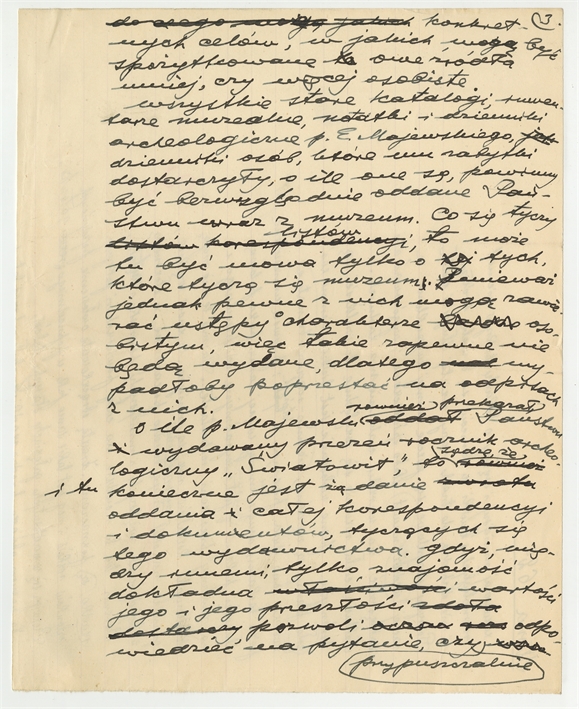 3.
do czego mogą jakich konkret-
nych celów, w jakich mogą być
spożytkowane owe źródła
mniej, czy więcej osobiste.
wszystkie stare katalogi, inwen-
tarze muzealne, notatki i dzienniki
archeologiczne p. E. Majewskiego,
dzienniki osób, które mu zabytki
dostarczyły, o ile one są, powinny
być bezwzględnie oddane Pań-
stwu wraz z muzeum. Co się tyczy
listów
listów korespondencyi, to może
tu być mowa tylko o tych,
które tyczą się muzeum. Ponieważ
jednak pewne z nich mogą zawie-
rać ustępy o charakterze oso-
bistym, więc takie zapewne nie
będą wydane, dlatego wy-
padłoby poprzestać na odpisach
z nich.
również przekazał
O ile p. Majewski oddał Państwu
i wydawany przezeń rocznik archeo-
sądzę że
logiczny „Światowit", to również
i tu
konieczne jest żądanie zwrotu
oddania i całej korespondencyi
i dokumentów, tyczących się
tego wydawnictwa. gdyż, mię-
dzy innemi, tylko znajomość
dokładna wartości
jego i jego przeszłości
pozwoli odpo-
wiedzieć na pytanie, czy
przypuszczalnie